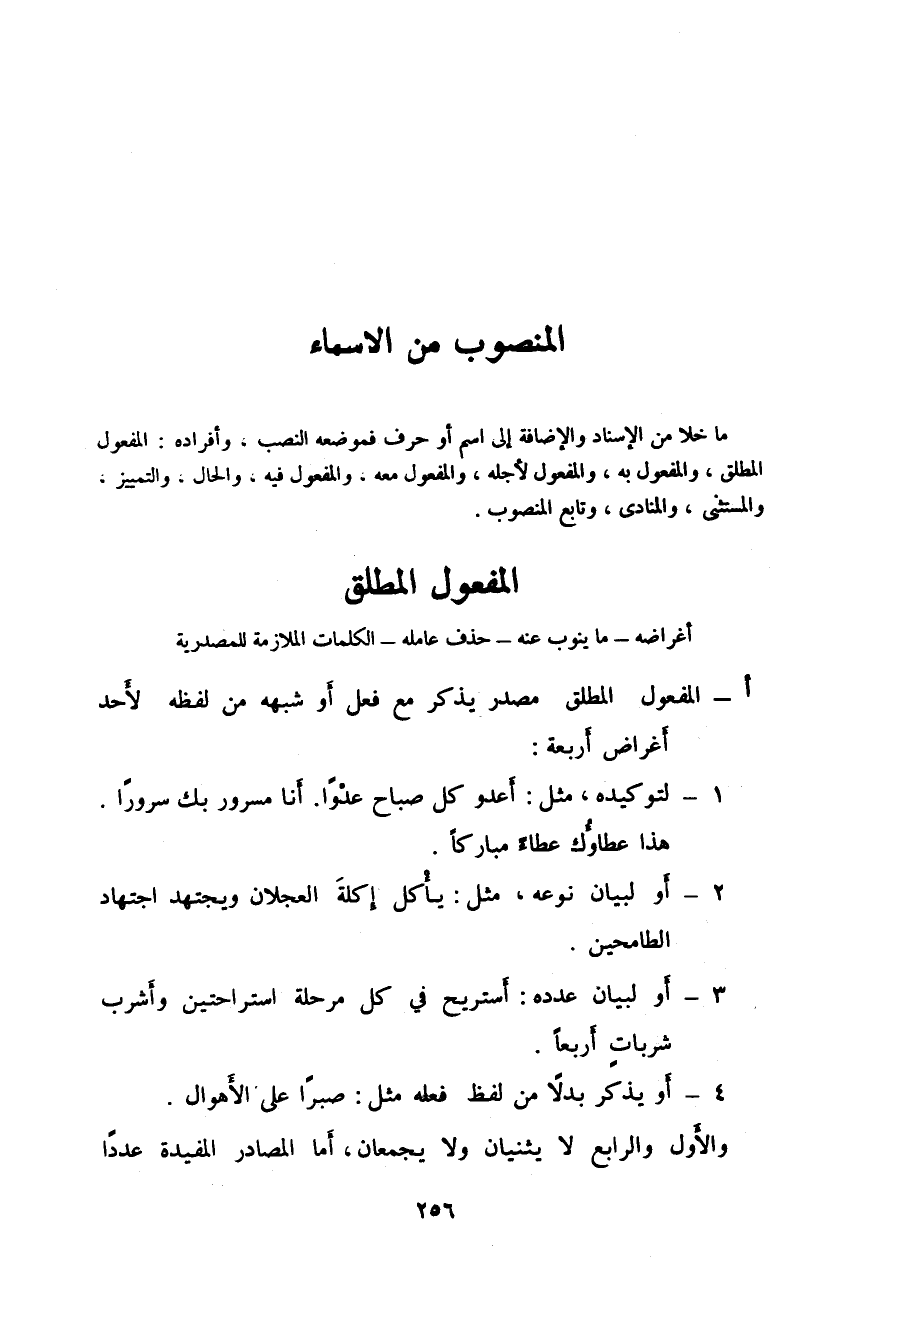 المنصوب من الاسماء
ما خلا من الإسناد والإضافة إلى اسم أو حرف فموضعه النصب ، وأفراده : المفعول
المطلق ، والمفعول به ، والمفعول لأجله ، والمفعول معه ، والمفعول فيه ، والحال ، والتمييز ،
والمستثنى ، والمنادى ، وتابع المنصوب .
المفعول المطلق
أغراضه – ما ينوب عنه – حذف عامله – الكلمات الملازمة للمصدرية
أ – المفعول المطلق مصدر يذكر مع فعل أو شبهه من لفظه لأَحد
أَغراض أَربعة :
١ – لتوكيده ، مثل : أَعدو كل صباح عدْوًا. أَنا مسرور بك سرورًا .
هذا عطاؤُك عطاءً مباركاً .
٢ – أَو لبيان نوعه ، مثل : يأْكل إِكلةَ العجلان ويجتهد اجتهاد
الطامحين .
٣ – أَو لبيان عدده : أَستريح في كل مرحلة استراحتين وأَشرب
شرباتٍ أَربعاً .
٤ – أَو يذكر بدلًا من لفظ فعله مثل : صبرًا على الأَهوال .
والأَول والرابع لا يثنيان ولا يجمعان ، أَما المصادر المفيدة عددًا
٢٥٦